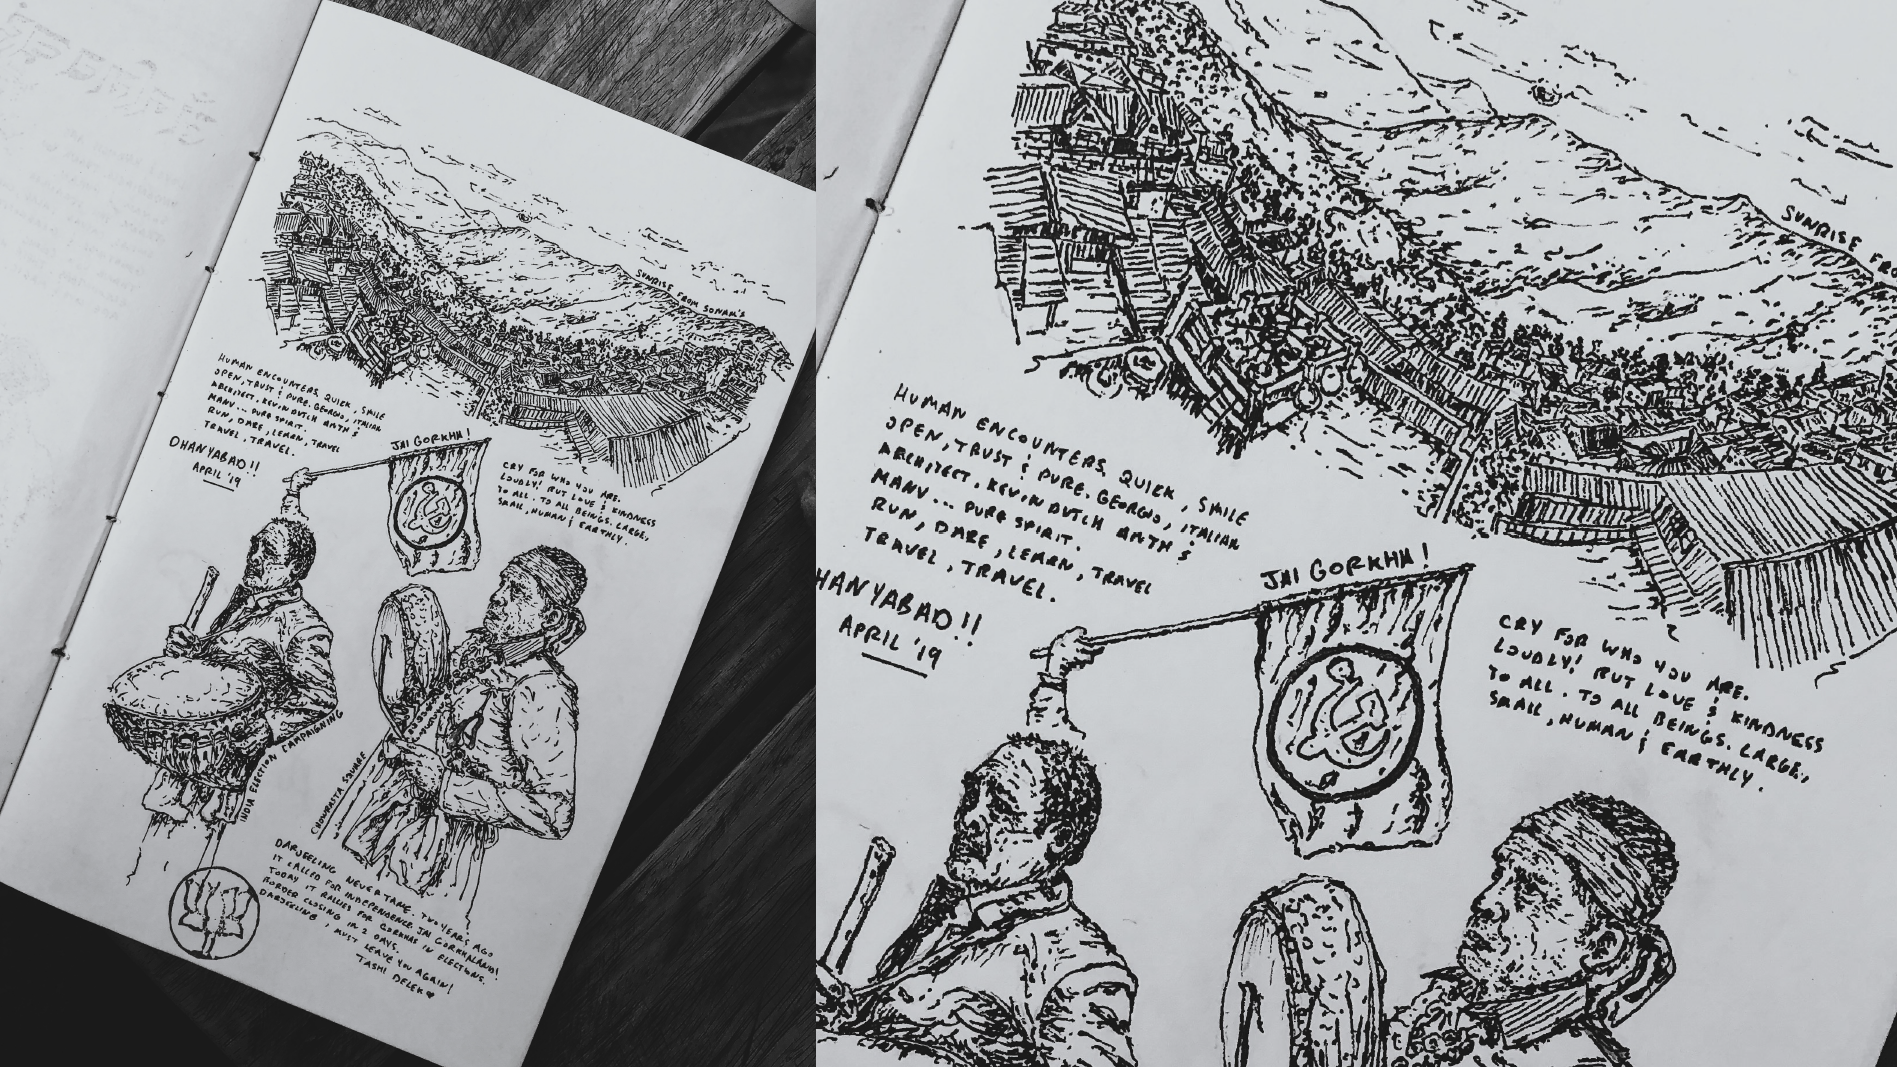 SUNRISE FROM SONAM'S
HUMAN ENCOUNTERS, QUICK, SMILE
OPEN, TRUST & PURE. GEORGIO, ITALIAN
ARCHITECT, KEVIN DUTCH &
MANY... PURE SPIRIT.
RUN, DARE, LEARN, TRAVEL
TRAVEL, TRAVEL.
DHANYABAD!!
APRIL '19
JAI GORKHA!
CRY FOR WHO YOU ARE.
LOUDLY! BUT LOVE & KINDNESS
TO ALL. TO ALL BEINGS. LARGE,
SMALL, HUMAN & EARTHLY.
INDIA ELECTION CAMPAIGNING
CHOWRASTA SQUARE
DARJEELING NEVER TAME. TWO YEARS AGO
IT CALLED FOR INDEPENDENCE JAI GORKHALAND!
TODAY IT RALLIES FOR GORKHAS IN ELECTIONS.
BORDER CLOSING IN 2 DAYS.
DARJEELING, I MUST LEAVE YOU AGAIN!
TASHI DELEK
SUNRISE FRO
HUMAN ENCOUNTERS, QUICK, SMILE
OPEN, TRUST & PURE. GEORGIO, ITALIAN
ARCHITECT, KEVIN DUTCH &
MANY... PURE SPIRIT.
RUN, DARE, LEARN, TRAVEL
TRAVEL, TRAVEL.
HANYABAD!!
APRIL '19
JAI GORKHA!
CRY FOR WHO YOU ARE.
LOUDLY! BUT LOVE & KINDNESS
TO ALL. TO ALL BEINGS. LARGE,
SMALL, HUMAN & EARTHLY.